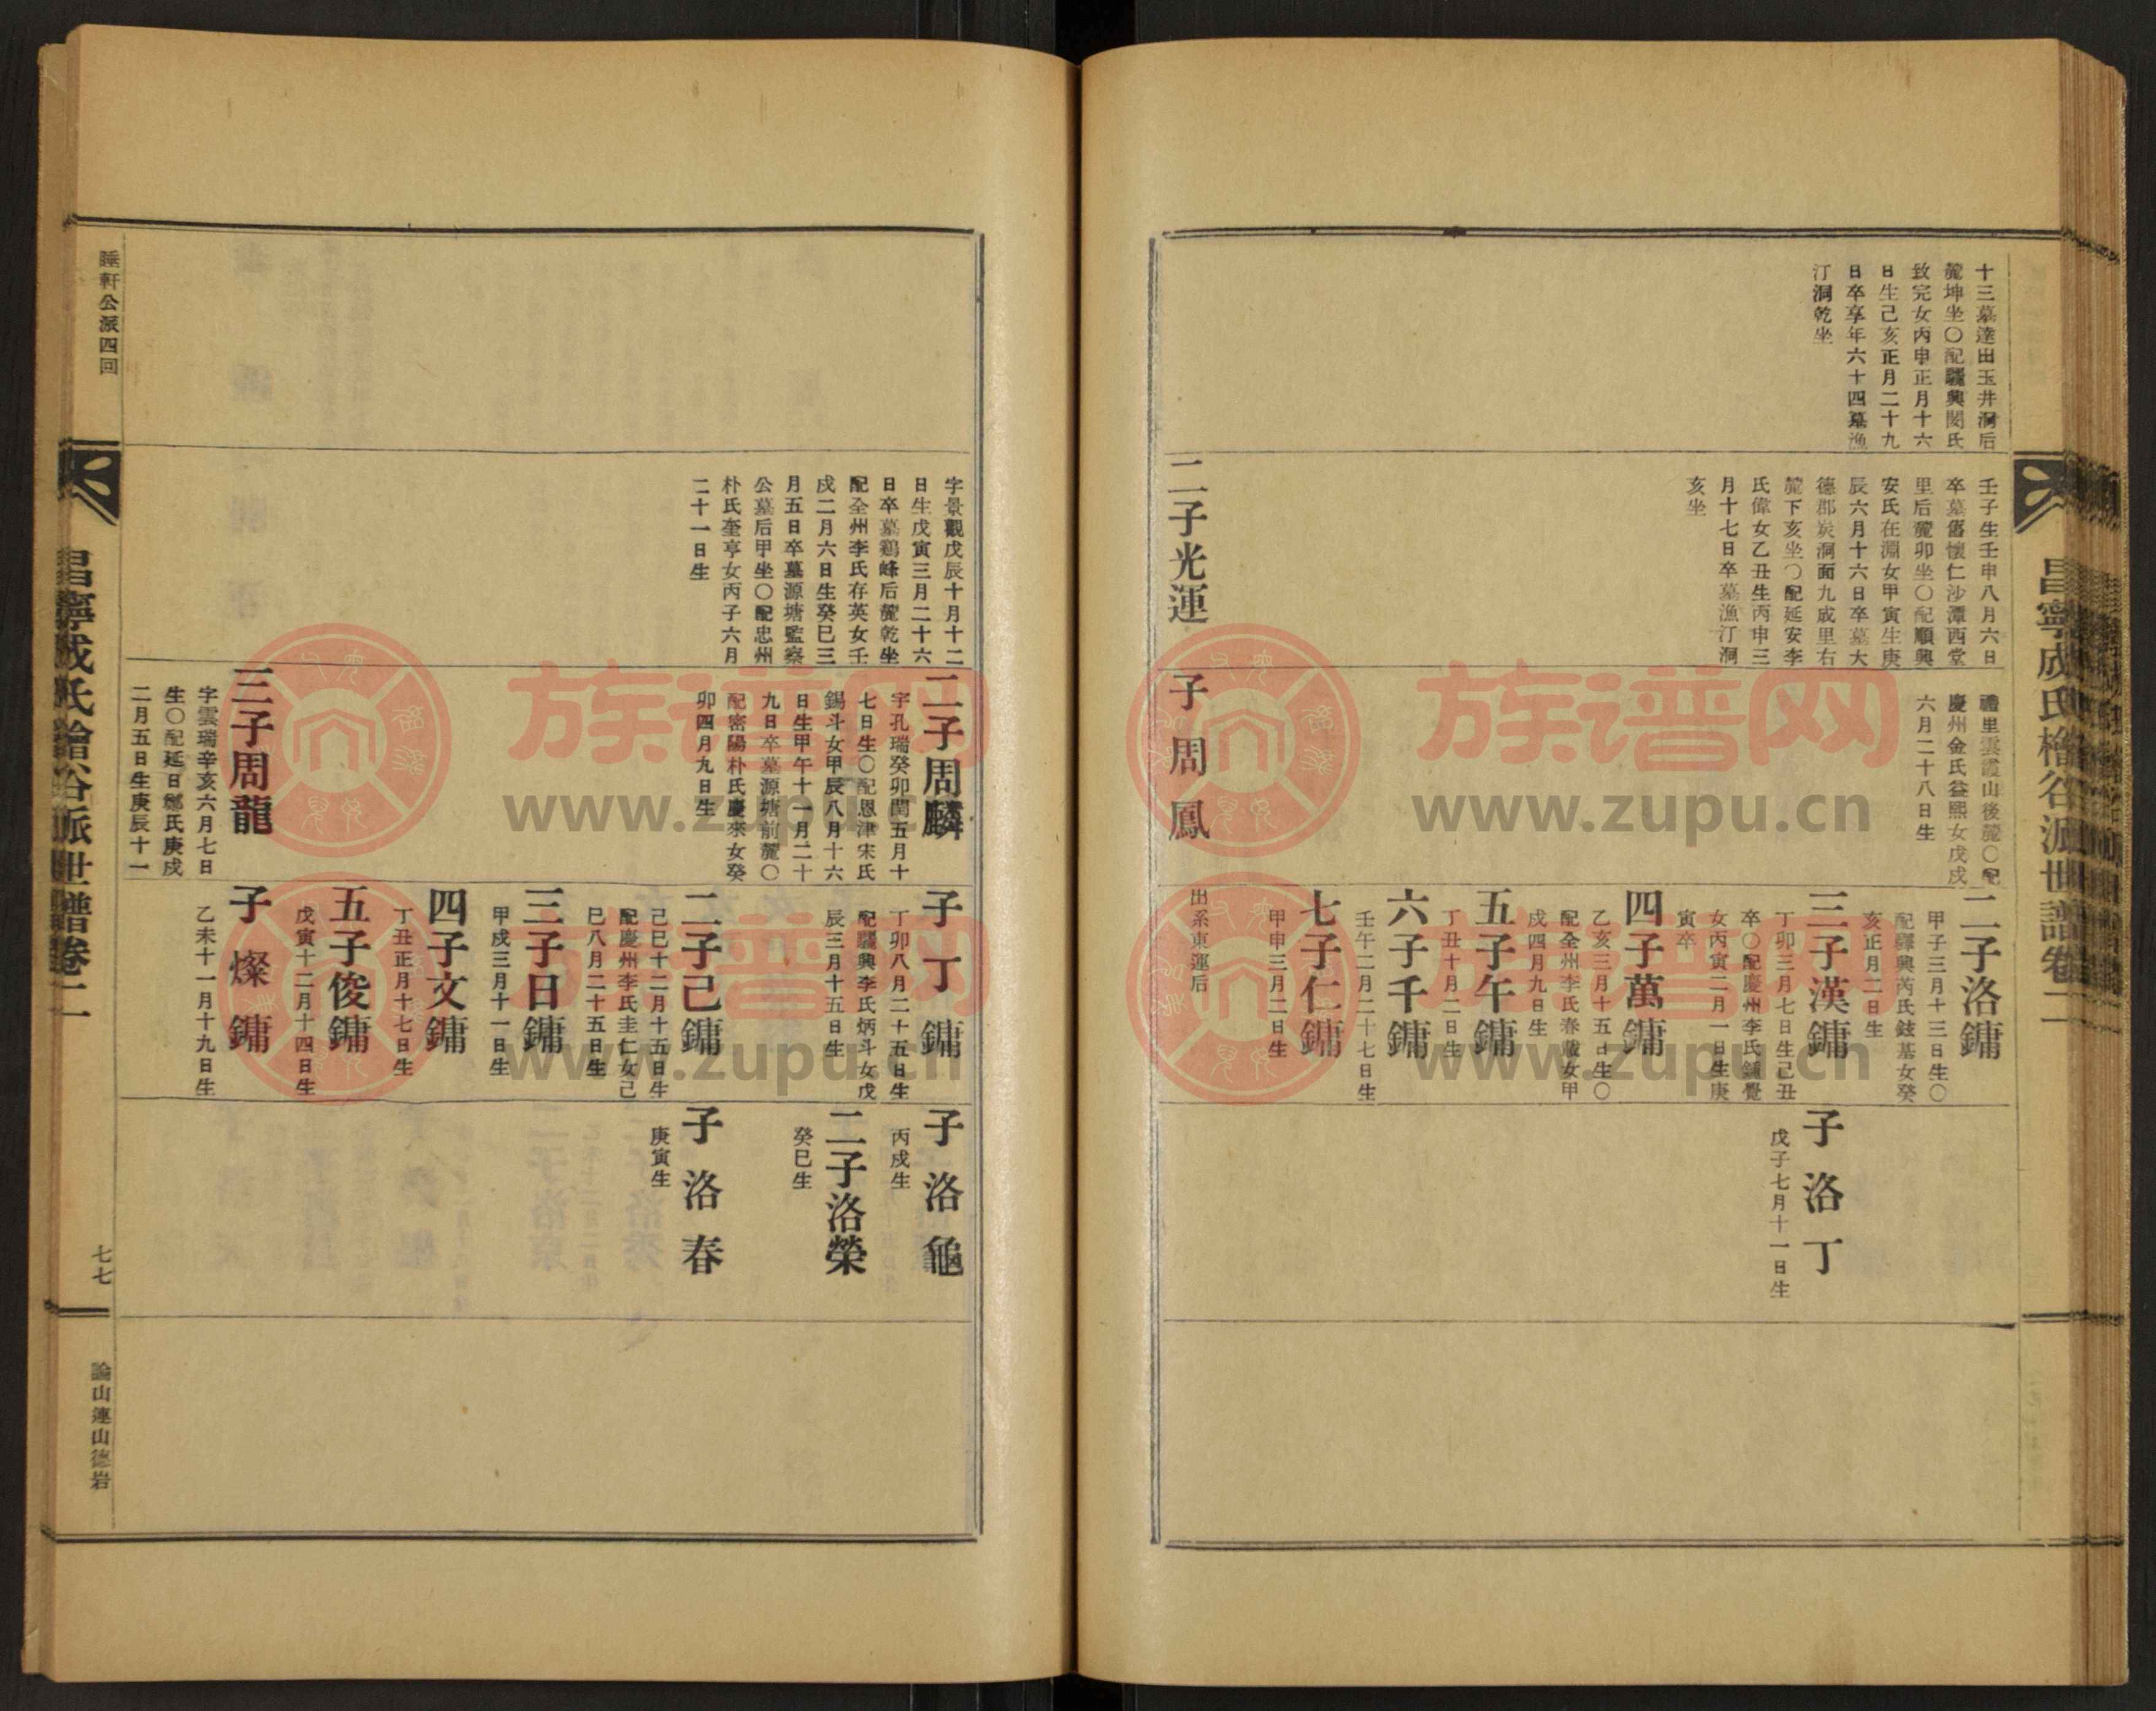 昌寧成氏檜谷派世譜卷二
十三墓達田玉井洞后
麓坤坐〇配驪興閔氏
致完女丙申正月十六
日生己亥正月二十九
日卒享年六十四墓漁
汀洞乾坐
壬子生壬申八月六日
卒墓舊懷仁沙潭西堂
里后麓卯坐〇配順興
安氏在淵女甲寅生庚
辰六月十六日卒墓大
德郡炭洞面九成里右
麓下亥坐〇配延安李
氏偉女乙丑生丙申三
月十七日卒墓漁汀洞
亥坐
二子光運
禮里雲霞山後麓〇配
慶州金氏益熙女戊戌
六月二十八日生
子周鳳
二子洛鏞
甲子三月十三日生〇
配驛興芮氏鼓基女癸
亥正月二日生
三子漢鏞
丁卯三月七日生己丑
卒〇配慶州李氏鍾覺
女丙寅二月一日生庚
寅卒
四子萬鏞
乙亥三月十五日生〇
配全州李氏春嚴女甲
戌四月九日生
五子午鏞
丁丑十月二日生
六子千鏞
壬午二月二十七日生
七子仁鏞
甲申三月二日生
出系東運后
子洛丁
戊子七月十一日生
字景觀戊辰十月十二
日生戊寅三月二十六
日卒墓鷄峰后麓乾坐
配全州李氏存英女壬
戌二月六日生癸巳三
月五日卒墓源塘監察
公墓后甲坐〇配忠州
朴氏奎亨女丙子六月
二十一日生
二子周麟
字孔瑞癸卯閏五月十
七日生〇配恩津宋氏
錫斗女甲辰八月十六
日生甲午十一月二十
九日卒墓源塘前麓〇
配密陽朴氏慶來女癸
卯四月九日生
三子周龍
字雲瑞辛亥六月七日
生〇配延日鄭氏庚戌
二月五日生庚辰十一
子丁鏞
丁卯八月二十五日生
配驪興李氏炳斗女戊
辰三月十五日生
二子己鏞
己巳十二月十五日生
配慶州李氏圭仁女己
巳八月二十五日生
三子日鏞
甲戌三月十一日生
四子文鏞
丁丑正月十七日生
五子俊鏞
戊寅十二月十四日生
子燦鏞
乙未十一月十九日生
子洛龜
丙戌生
二子洛榮
癸巳生
子洛春
庚寅生
睡軒公派四回
昌寧成氏檜谷派世譜卷二
七七
論山連山德岩
族谱网
www.zupu.cn
族谱网
www.zupu.cn
族谱网
www.zupu.cn
族谱网
www.zupu.cn